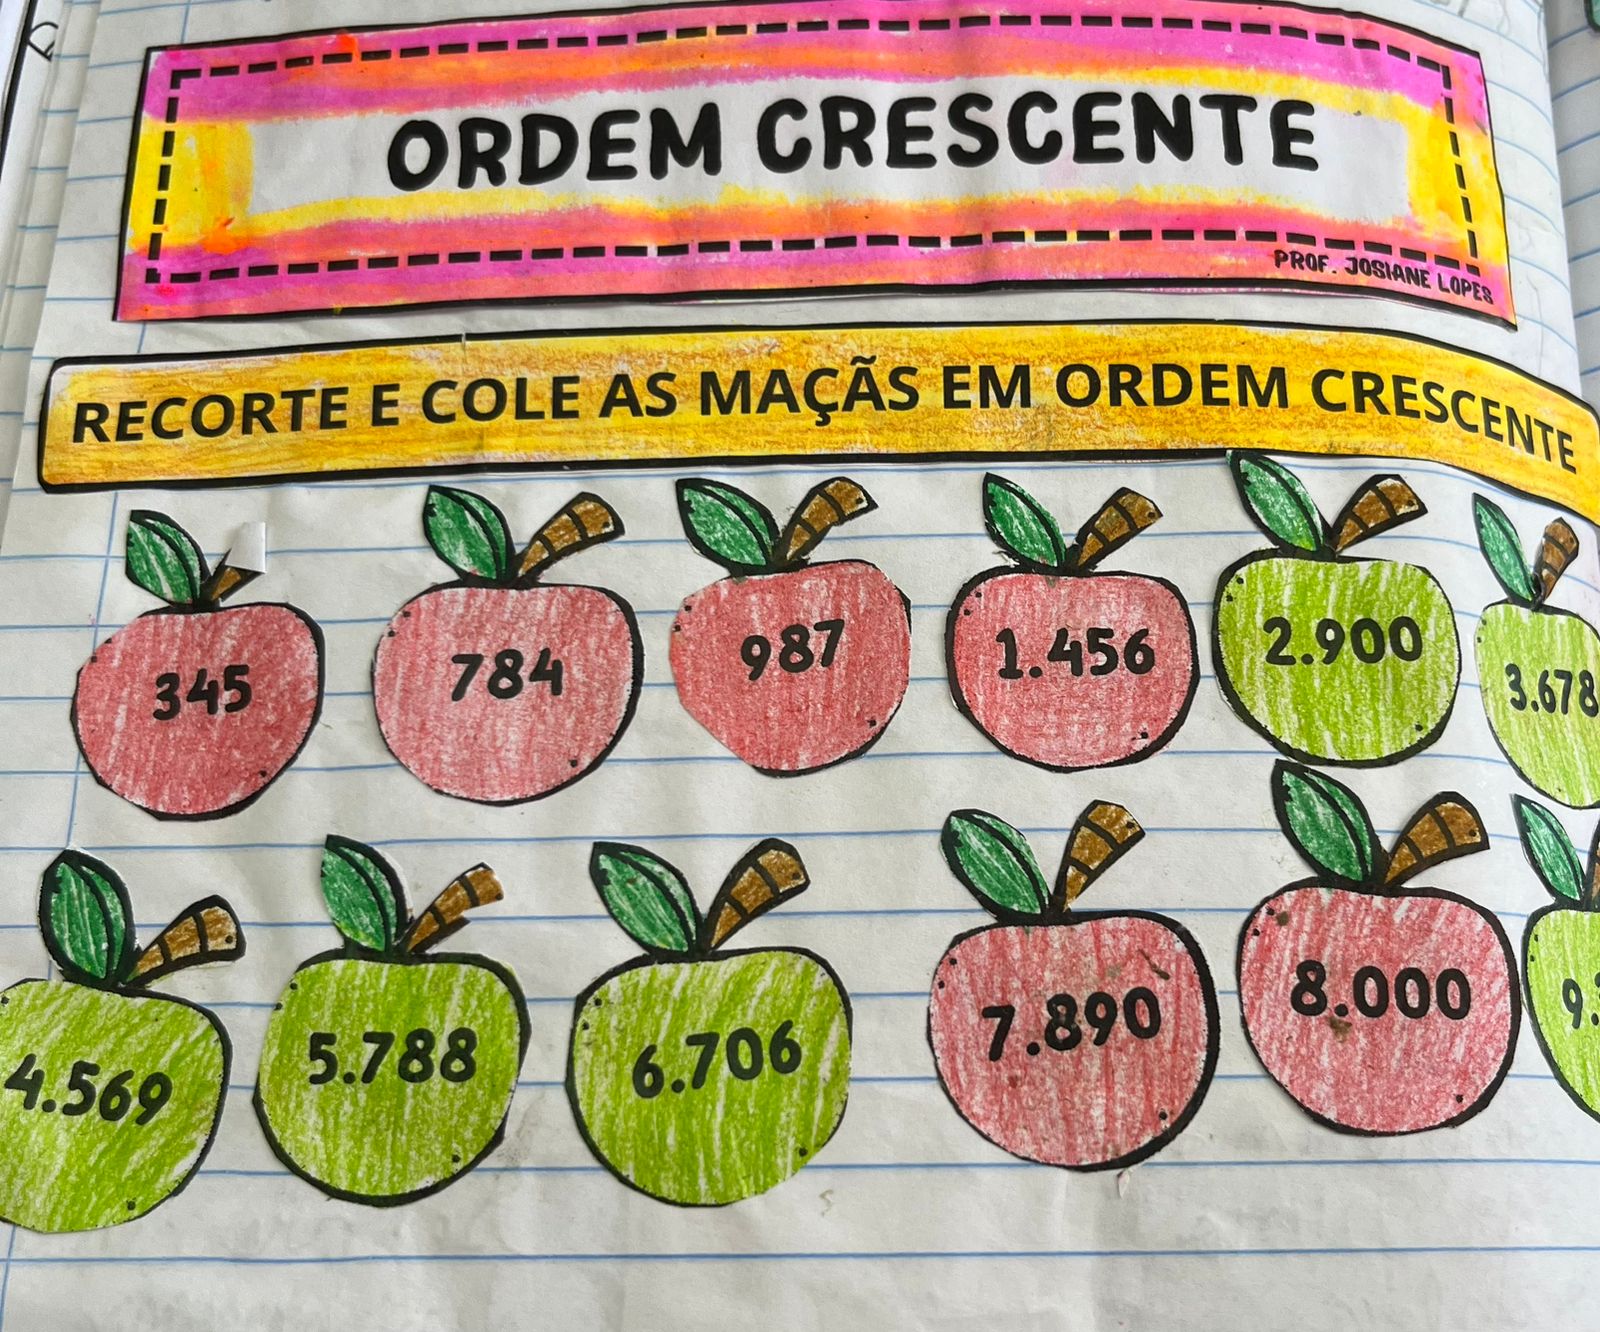 ORDEM CRESCENTE
PROF. JOSIANE LOPES
RECORTE E COLE AS MAÇÃS EM ORDEM CRESCENTE
345 784 987 1.456 2.900 3.678
4.569 5.788 6.706 7.890 8.000